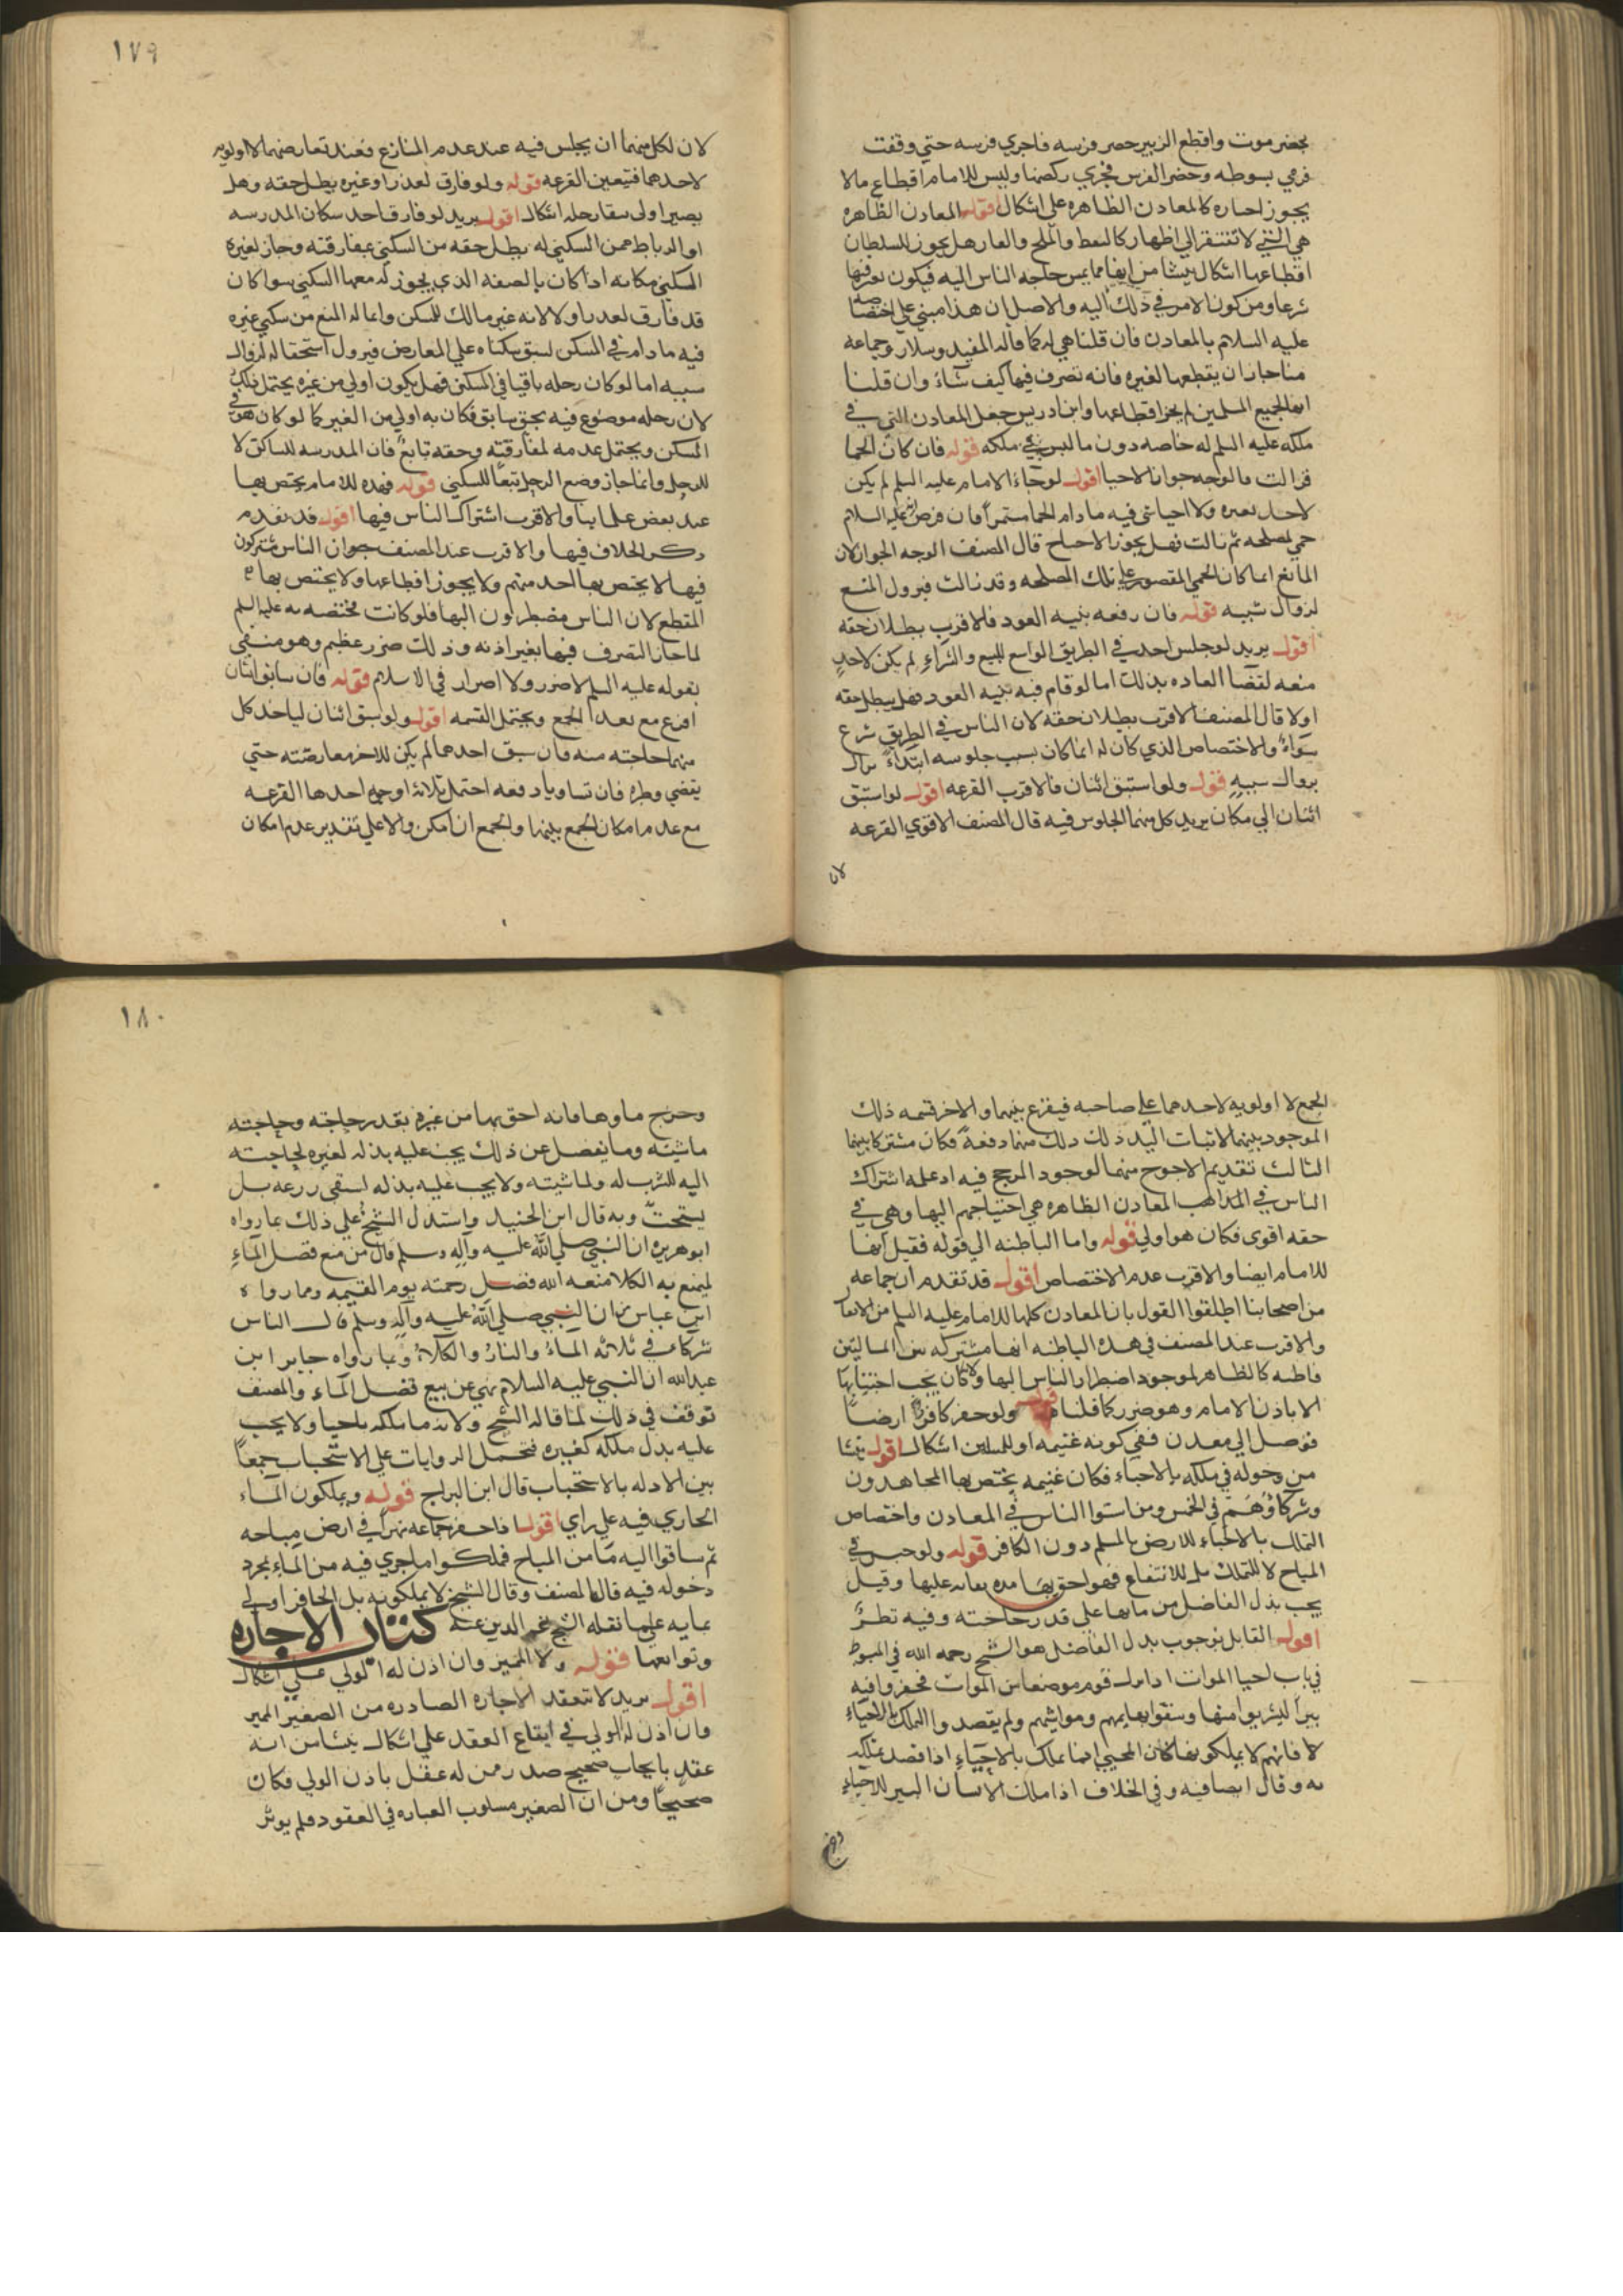 بحضرموت واقطع الزبير حضر فرسه فاجري فرسه حتي وقفت
فرمي بسوطه وحضر الفرس فجري ركضها وليس للامام اقطاع مالا
يجوز احياره كالمعادن الظاهره علي اشكال اقوله المعادن الظاهره
هي التي لا تفتقر الي اظهار كالنفط والملح والقار هل يجوز للسلطان
اقطاعها اشكال ينشا من انها مما يمس حاجه الناس اليه فيكون
شرعا ومن كون الامر في ذلك اليه والاصل ان هذا مبني علي اختصاصه
عليه السلام بالمعادن فان قلنا هي له كما قاله المفيد وسلار وجماعه
منا جاز ان يقطعها لغيره فانه تصرف فيها كيف شاء وان قلنا
انها لجميع المسلمين لم يجز اقطاعها وابن ادريس جعل المعادن التي في
ملكه عليه السلم له خاصه دون ما ليس في ملكه قوله فان كان الحما
فزالت فالوجه جواز الاحيا اقول لو حماء الامام عليه السلم لم يكن
لاحد تغيره ولا احيا شي فيه ما دام الحما مستمرا فان فرض انه عليه السلام
حمي لمصلحه ثم زالت فهل يجوز الاحياء قال المصنف الوجه الجواز لان
المانع انما كان الحمي المقصور علي تلك المصلحه وقد زالت فيزول المنع
لزوال سببه قوله فان رفعه بنيه العود فالاقرب بطلان حقه
اقول يريد لو جلس احد في الطريق الواسع للبيع والشراء لم يكن لاحد
منعه لقضا العاده بذلك اما لو قام فيه بنيه العود فهل يبطل حقه
اولا قال المصنف الاقرب بطلان حقه لان الناس في الطريق شرع
سواء والاختصاص الذي كان له انما كان بسبب جلوسه ابتداء فزال
بزوال سببه قوله ولو استبق اثنان فالاقرب القرعه اقول لو استبق
اثنان الي مكان يريد كل منهما الجلوس فيه قال المصنف الاقوي القرعه
لان
١٧٩
لان لكل منهما ان يجلس فيه عند عدم المنازع فعند تعارضهما لا اولويه
لاحدهما فتيعين القرعه قوله ولو فارق لعذر او غيره بطل حقه وهل
يصير اولي ببقا رحله اشكال اقول يريد لو فارق احد سكان المدرسه
او الرباط ممن السكني له بطل حقه من السكني بمفارقته وجاز لغيره
السكني مكانه اذا كان بالصفه الذي يجوز له معها السكني سوا كان
قد فارق لعذر اولا لانه غير مالك للمسكن وانما له المنع من سكني غيره
فيه ما دام في المسكن لسبق سكناه علي المعارض فيزول استحقاقه لزوال
سببه اما لو كان رحله باقيا في المسكن فهل يكون اولي من غيره يحتمل ذلك
لان رحله موضوع فيه بحق سابق فكان به اولي من الغير كما لو كان هو في
المسكن ويحتمل عدمه لمفارقته وحقه تابع فان المدرسه للساكن لا
للرحل وانما جاز وضع الرحل تبعا للسكني قوله فهذه للامام يختص بها
عند بعض علمائنا والاقرب اشتراك الناس فيها اقول قد تقدم
ذكر الخلاف فيها والاقرب عند المصنف جواز ان الناس مشتركون
فيها لا يختص بها احد منهم ولا يجوز اقطاعها ولا يختص بها
المقطع لان الناس مضطرون اليها فلو كانت مختصه به عليه السلم
لما جاز التصرف فيها بغير اذنه وذلك ضرر عظيم وهو منفي
بقوله عليه السلم لا ضرر ولا اضرار في الاسلام قوله فان سابق اثنان
اقرع مع تعذر الجمع ويحتمل القسمه اقول ولو سبق اثنان لياخذ كل
منهما حاجته منه فان سبق احدهما لم يكن للاخر معارضته حتي
يقضي وطره فان تساويا دفعه احتمل ثلاثه اوجه احدها القرعه
مع عدم امكان الجمع بينهما والجمع ان امكن والا علي تقدير عدم امكان
الجمع لا اولويه لاحدهما علي صاحبه فيقرع بينهما والاخر قسمه ذلك
الموجود بينهما لاثبات اليد ذلك منهما دفعة فكان مشتركا بينهما
الثالث تقديم الاحوج منهما لوجود المرجح فيه اذ عله اشتراك
الناس في المعادن الظاهره هي احتياجهم اليها وهي في
حقه اقوي فكان هو اولي قوله واما الباطنه الي قوله فقيل انها
للامام ايضا والاقرب عدم الاختصاص اقول قد تقدم ان جماعه
من اصحابنا اطلقوا القول بان المعادن كلها للامام عليه السلم من الانفال
والاقرب عند المصنف في هذه الباطنه انها مشتركه بين المسلمين
كالظاهر لوجود اضطرار الناس اليها والا لكان يجب اجتنابها
الا باذن الامام وهو ضرر كما قلناه قوله ولو حفر كافر ارضا
فوصل الي معدن ففي كونه غنيمه او للمسلمين اشكال اقول ينشا
من دخوله في ملكه بالاحياء فكان غنيمه يختص بها المجاهدون
وشركاؤهم في الخمس ومن استوا الناس في المعادن واختصاص
التملك بالاحياء للارض بالمسلم دون الكافر قوله ولو حفر في
المباح لا للتملك بل للانتفاع فهو احق بها مده مقامه عليها وقيل
يجب بذل الفاضل من مائها علي قدر حاجته وفيه نظر
اقول القايل بوجوب بدل الفاضل هو الشيخ رحمه الله في المبسوط
في باب احيا الموات اذا نزل قوم موضعا من الموات فحفروا فيه
بيرا ليشربوا منها وسقوا بهايمهم ومواشيهم ولم يقصدوا التملك بالاحياء
لا فانهم لا يملكونها كان المحيي انما يملك بالاحياء اذا قصد تملكه
به وقال ايضا فيه وفي الخلاف اذا ملك الانسان البير للاحياء
وخرج
١٨٠
وخرج ماوها فانه احق بها من غيره بقدر حاجته وحاجته
ماشيته وما يفضل عن ذلك يجب عليه بذله لغيره لحاجته
اليه للشرب له ولماشيته ولا يجب عليه بذله لسقي زرعه بل
يستحب وبه قال ابن الجنيد واستدل الشيخ علي ذلك بما رواه
ابو هريره ان النبي صلي الله عليه وآله وسلم قال من منع فضل الماء
ليمنع به الكلا منعه الله فضل رحمته يوم القيمه وبما رواه
ابن عباس ان النبي صلي الله عليه وآله وسلم قال الناس
شركاء في ثلاثه الماء والنار والكلاء وبما رواه جابر ابن
عبدالله ان النبي عليه السلام نهي عن بيع فضل الماء والمصنف
توقف في ذلك لما قاله الشيخ ولانه ما ملكه باحيا ولا يجب
عليه بذل ملكه كغيره فتحمل الروايات علي الاستحباب جمعا
بين الادله بالاستحباب قال ابن البراج قوله ويملكون الماء
الجاري فيه علي راي اقول اذا حفر جماعه نهرا في ارض مباحه
ثم ساقوا اليه ما من المباح فملكوا ما جري فيه من الماء بمجرد
دخوله فيه قاله المصنف وقال الشيخ لا يملكونه بل الحافر اولي
بمايه علي ما نقله الشيخ نجم الدين عنه كتاب الاجاره
وتوابعها قوله ولا المميز وان اذن له الولي علي اشكال
اقول يريد لا تنعقد الاجاره الصادره من الصغير المميز
وان اذن له الولي في ايقاع العقد علي اشكال ينشا من انه
عقد بايجاب صحيح صدر ممن له عقل باذن الولي فكان
صحيحا ومن ان الصغير مسلوب العباره في العقود فلم يوثر